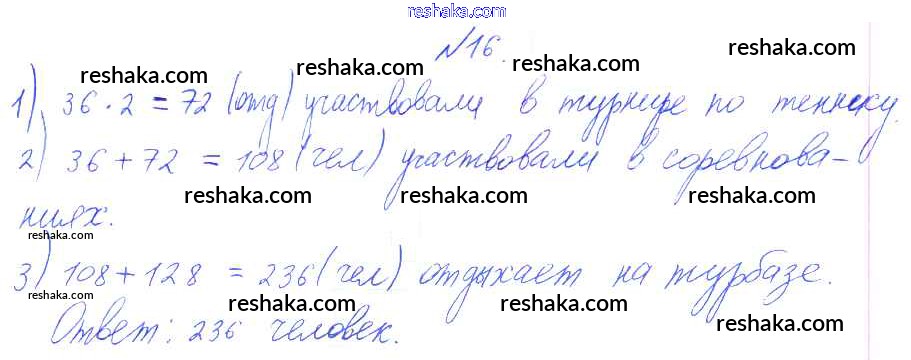 reshaka.com
№16.
reshaka.com reshaka.com reshaka.com reshaka.com
1) 36 · 2 = 72 (отд) участвовали в турнире по теннису.
reshaka.com reshaka.com reshaka.com
2) 36 + 72 = 108 (чел) участвовали в соревнова-
reshaka.com reshaka.com reshaka.com
ниях.
reshaka.com
3) 108 + 128 = 236 (чел) отдыхает на турбазе.
reshaka.com reshaka.com reshaka.com
Ответ: 236 человек.
reshaka.com reshaka.com